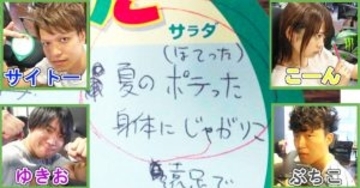 サラダ
(ほてった)
夏の ポテった
身体に じゃがりこ
遠足で
サイトー
こーん
ゆきお
ぷちこ